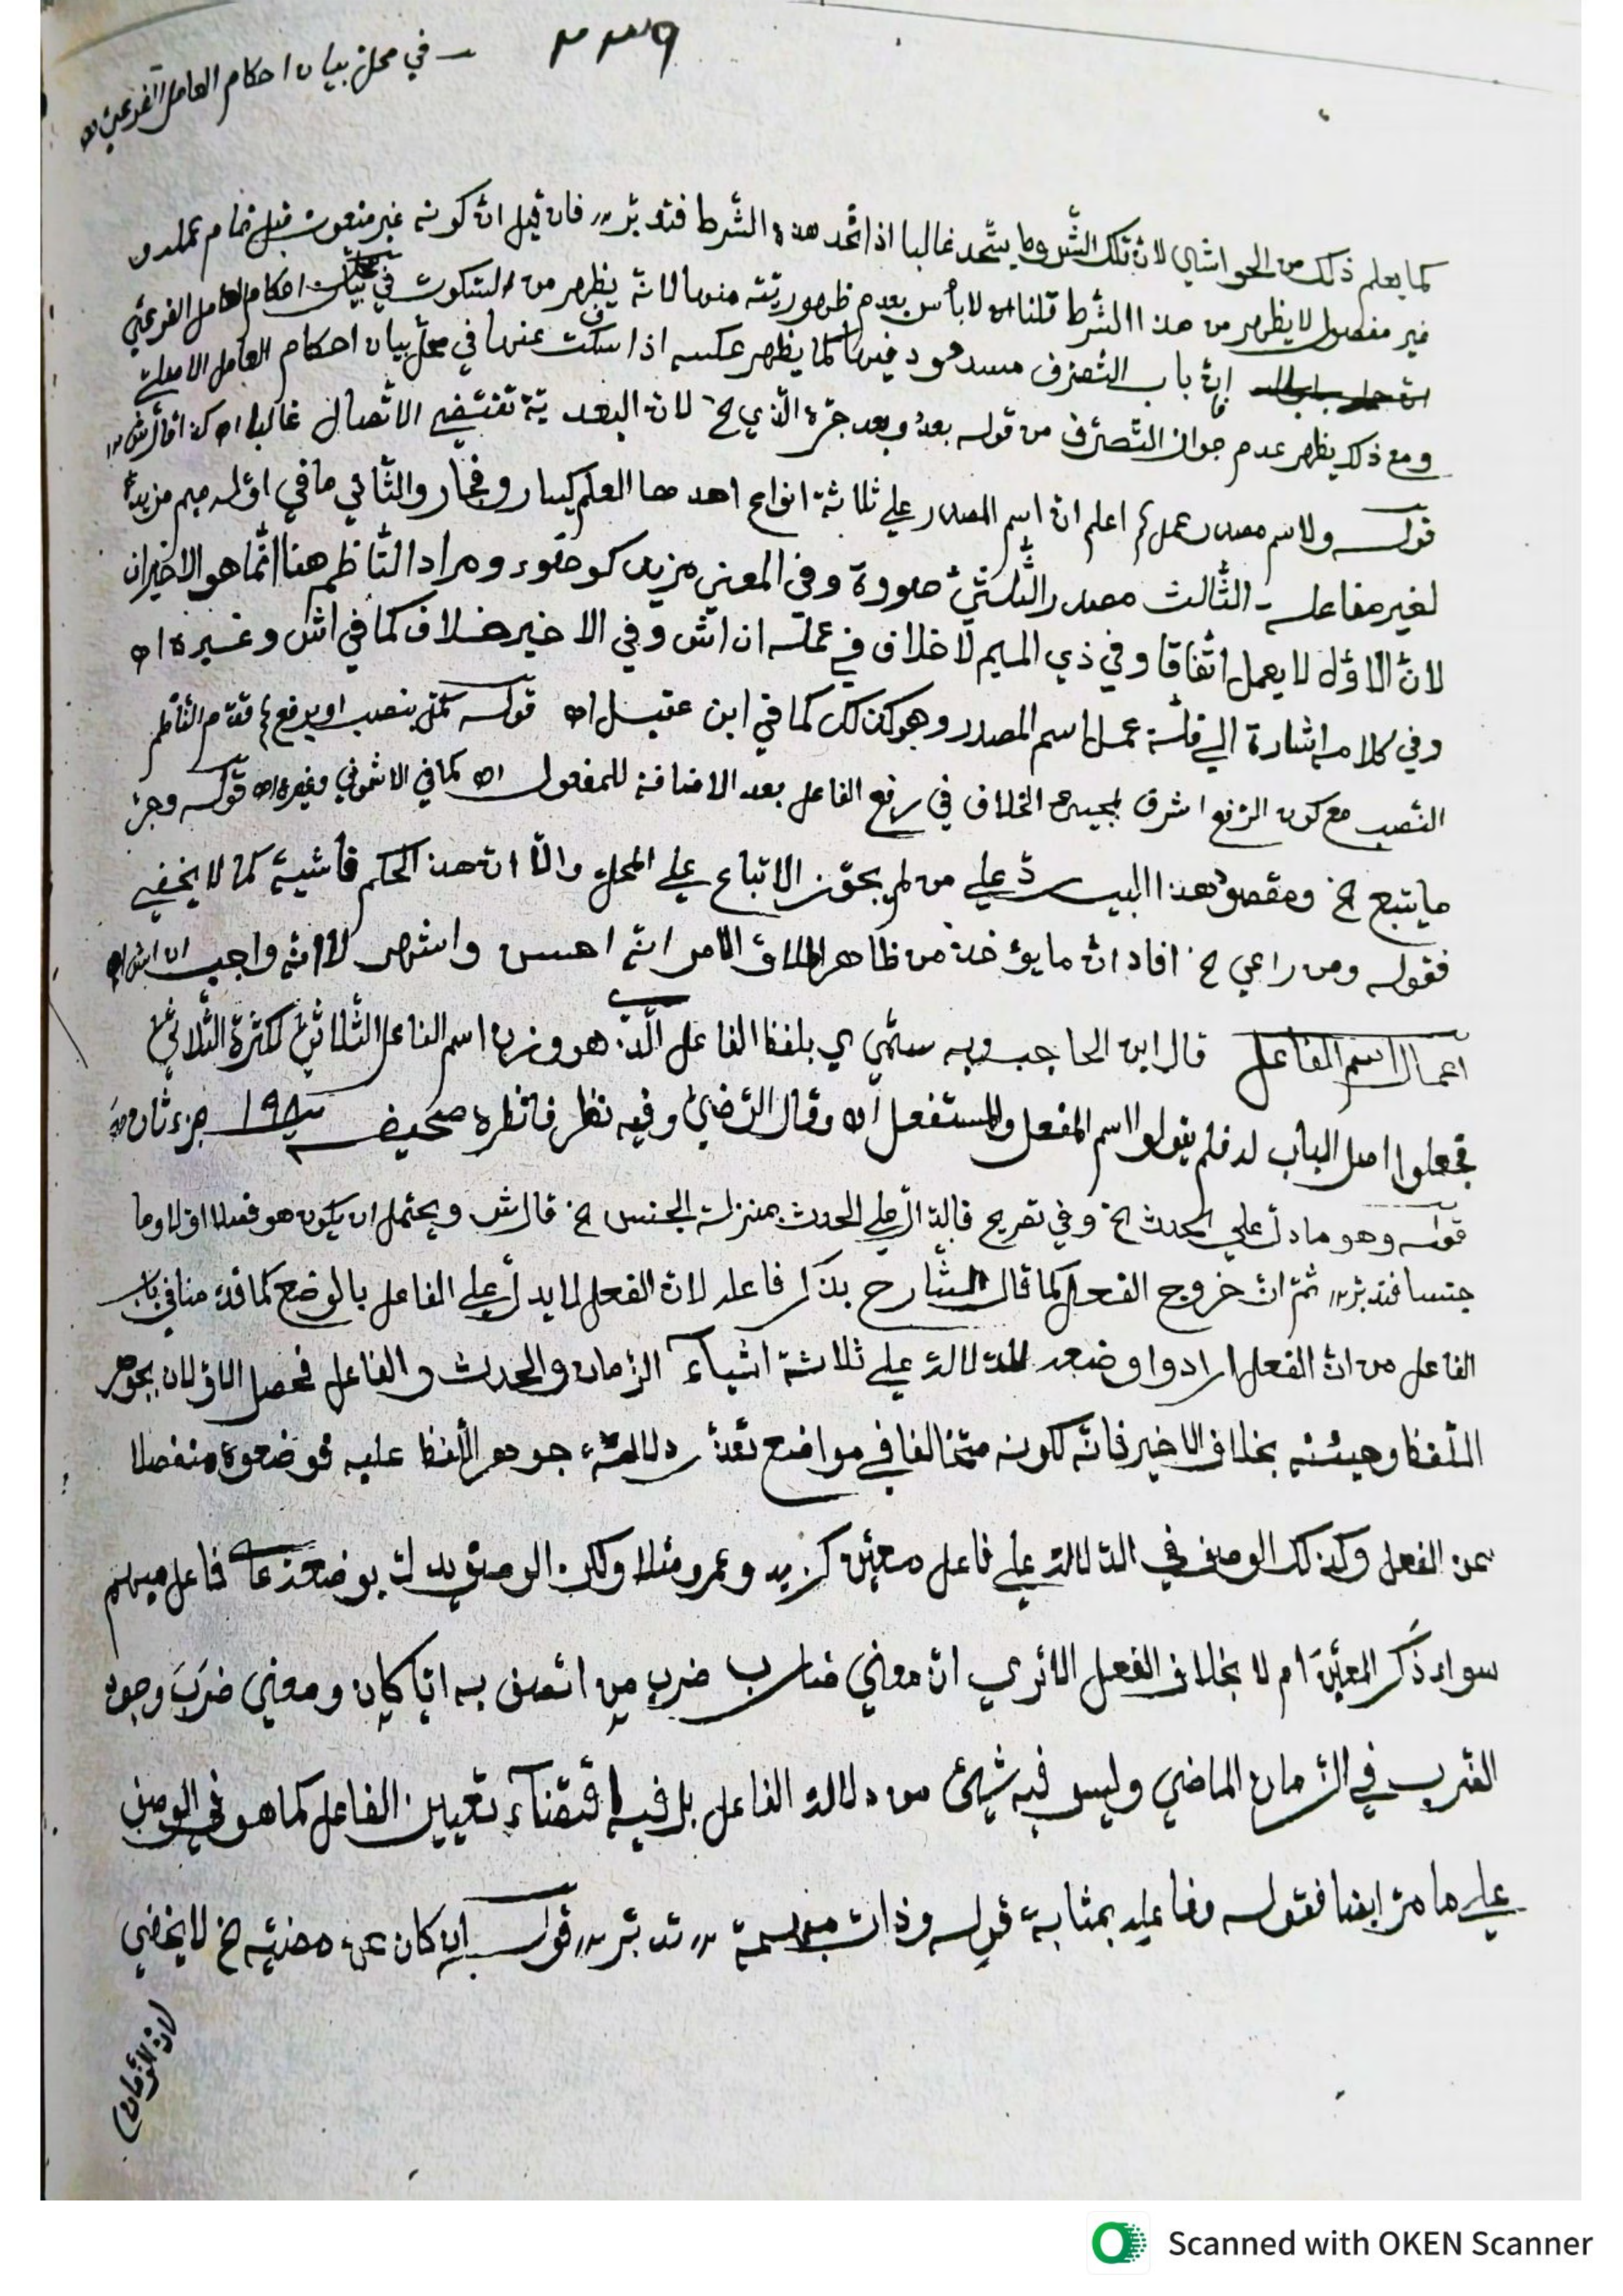 في محل بيان احكام العامل الفرعي اه
كما يعلم ذلك من الحواشي لان تلك الشروط يتحد غالبا اذا اتحد هذه الشرط فتدبر فان قيل ان كونه غير منعوت قبل تمام عمله و
غير مفصول لا يظهر من هذا الشرط قلنا لا بأس بعدم ظهوريته منها لانه يظهر من السكوت في بيان احكام العامل الفرعي
ان باب التصرف مسدود فيها كما يظهر عكسه اذا سكت عنها في محل بيان احكام العامل الاصلي
ومع ذلك يظهر عدم جواز التصرف من قوله بعد وبعد جره الذي الخ لان البعدية تقتضي الاتصال غالبا اه
قوله ولاسم مصدر عمل اعلم ان اسم المصدر علي ثلاثة انواع احدها العلم كيسار وفجار والثاني ما في اوله ميم مزيدة
لغير مفاعلة الثالث مصدر الثلاثي صورة وفي المعني مزيد كوضوء ومراد الناظم هنا انما هو الاخيران
لان الاول لا يعمل اتفاقا وفي ذي الميم لا خلاف في عمله ان اش وفي الاخير خلاف كما في اش وغيره اه
وفي كلامه اشارة الي قلة عمل اسم المصدر وهو كذلك كما في ابن عقيل اه قوله كمل بنصب او برفع قدم الناظم
النصب مع كون الرفع اشرف لمجيئ الخلاف في رفع الفاعل بعد الاضافة للمفعول اه كما في الاشموني وغيره اه قوله وجر
ما يتبع الخ ومقصود هذا البيت رد علي من لم يجوز الاتباع علي المحل والا ان هذا الحكم كما لا يخفي
فقوله ومن راعي الخ افاد ان ما يؤخذ من ظاهر اطلاق الامر انه احسن واشهر لا انه واجب
اعمال اسم الفاعل قال ابن الحاجب وبه سمي ي بلفظ الفاعل الذي هو وزن اسم الفاعل الثلاثي لكثرة الثلاثي
فجعلوا اصل الباب له فلم يقولوا اسم المفعل والمستفعل اه وقال الرضي وفيه نظر فانظره صحيفه ١٩٨ جزء ثان
قوله وهو ما دل علي الحدث الخ وفي تصريح فالدال علي الحدث بمنزلة الجنس الخ قال ش ويحتمل ان يكون هو فصلا اولا وما
جنسا فتدبر ثم ان خروج الفعل كما قال الشارح بذكر فاعله لان الفعل لا يدل علي الفاعل بالوضع كما قدمنا في باب
الفاعل من ان الفعل ارادوا وضعه للدلالة علي ثلاثة اشياء الزمان والحدث والفاعل فحصل الاولان بجوهر
اللفظ وهيئته بخلاف الاخير فانه لكونه متخالفا في مواضع تعذر دلالة جوهر اللفظ عليه فوضعوه منفصلا
عن الفعل وكذلك الوصف في الدلالة علي فاعل معين كزيد وعمرو مثلا ولكن الوصف يدل بوضعه علي فاعل مبهم
سواء ذكر المعين ام لا بخلاف الفعل الا تري ان معني ضارب ضرب من اتصف به ايا كان ومعني ضرب وجود
الضرب في الزمان الماضي وليس فيه شيئ من دلالة الفاعل بل فيه اقتضاء تعيين الفاعل كما هو في الوصف
علي ما مر ايضا فقوله وفاعله بمثابة قوله وذات مبهمة تدبر قوله ان كان عن مضيه الخ لا يخفي
لان الزمان
Scanned with OKEN Scanner